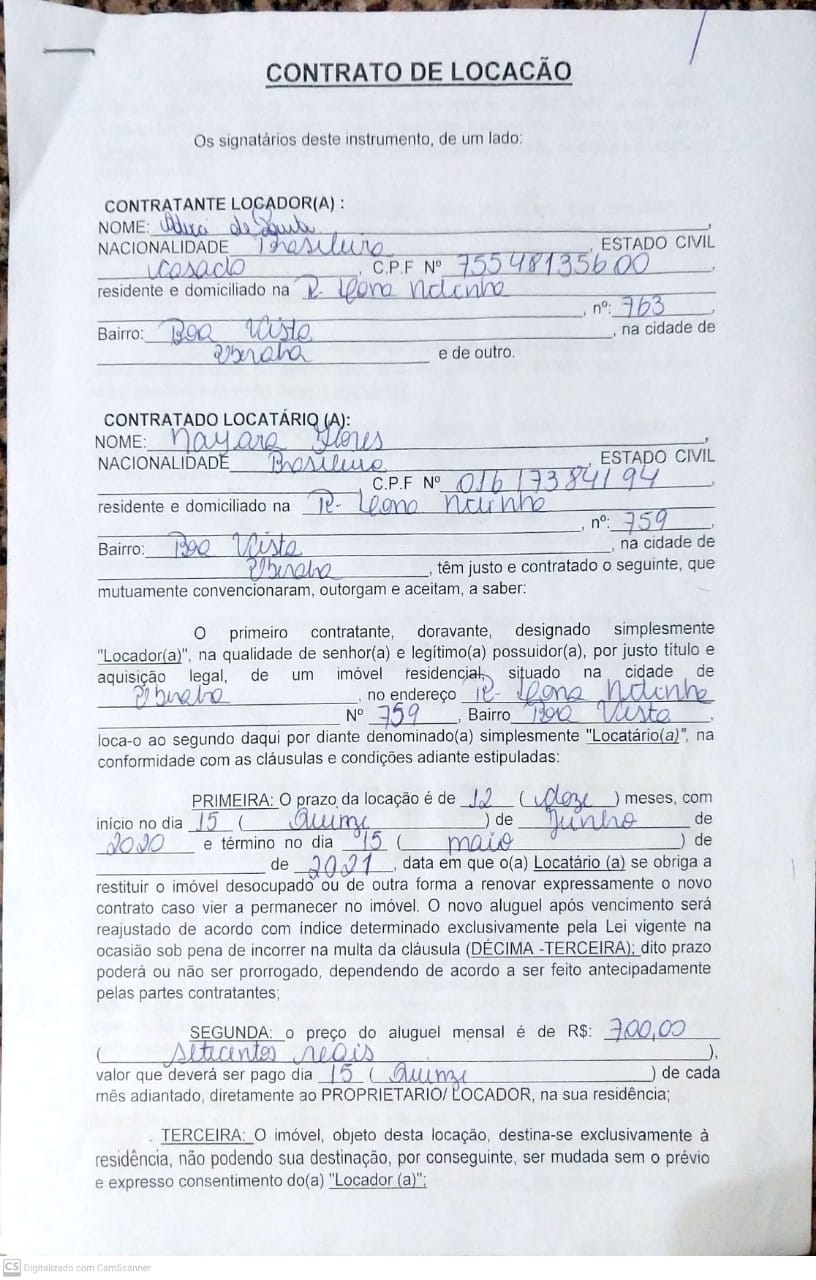 CONTRATO DE LOCACÃO
Os signatários deste instrumento, de um lado:
CONTRATANTE LOCADOR(A) :
NOME: de
NACIONALIDADE Brasileiro, ESTADO CIVIL
casado, C.P.F Nº 75548135600,
residente e domiciliado na R- Dona
, nº: 763,
Bairro: Boa Vista, na cidade de
Uberaba e de outro.
CONTRATADO LOCATÁRIO (A):
NOME: Nayara Flores,
NACIONALIDADE Brasileira, ESTADO CIVIL
C.P.F Nº 01617384194
residente e domiciliado na R- Dona
, nº: 759,
Bairro: Boa Vista, na cidade de
Uberaba, têm justo e contratado o seguinte, que
mutuamente convencionaram, outorgam e aceitam, a saber:
O primeiro contratante, doravante, designado simplesmente
"Locador(a)", na qualidade de senhor(a) e legítimo(a) possuidor(a), por justo título e
aquisição legal, de um imóvel residencial, situado na cidade de
Uberaba, no endereço R- Dona
Nº 759, Bairro Boa Vista,
loca-o ao segundo daqui por diante denominado(a) simplesmente "Locatário(a)", na
conformidade com as cláusulas e condições adiante estipuladas:
PRIMEIRA: O prazo da locação é de 12 (doze) meses, com
início no dia 15 (Quinze) de Junho de
2020 e término no dia 15 (maio) de
de 2021, data em que o(a) Locatário (a) se obriga a
restituir o imóvel desocupado ou de outra forma a renovar expressamente o novo
contrato caso vier a permanecer no imóvel. O novo aluguel após vencimento será
reajustado de acordo com índice determinado exclusivamente pela Lei vigente na
ocasião sob pena de incorrer na multa da cláusula (DÉCIMA -TERCEIRA); dito prazo
poderá ou não ser prorrogado, dependendo de acordo a ser feito antecipadamente
pelas partes contratantes;
SEGUNDA: o preço do aluguel mensal é de R$: 700,00
(setecentos reais),
valor que deverá ser pago dia 15 (Quinze) de cada
mês adiantado, diretamente ao PROPRIETARIO/ LOCADOR, na sua residência;
. TERCEIRA: O imóvel, objeto desta locação, destina-se exclusivamente à
residência, não podendo sua destinação, por conseguinte, ser mudada sem o prévio
e expresso consentimento do(a) "Locador (a)";
CS Digitalizado com CamScanner